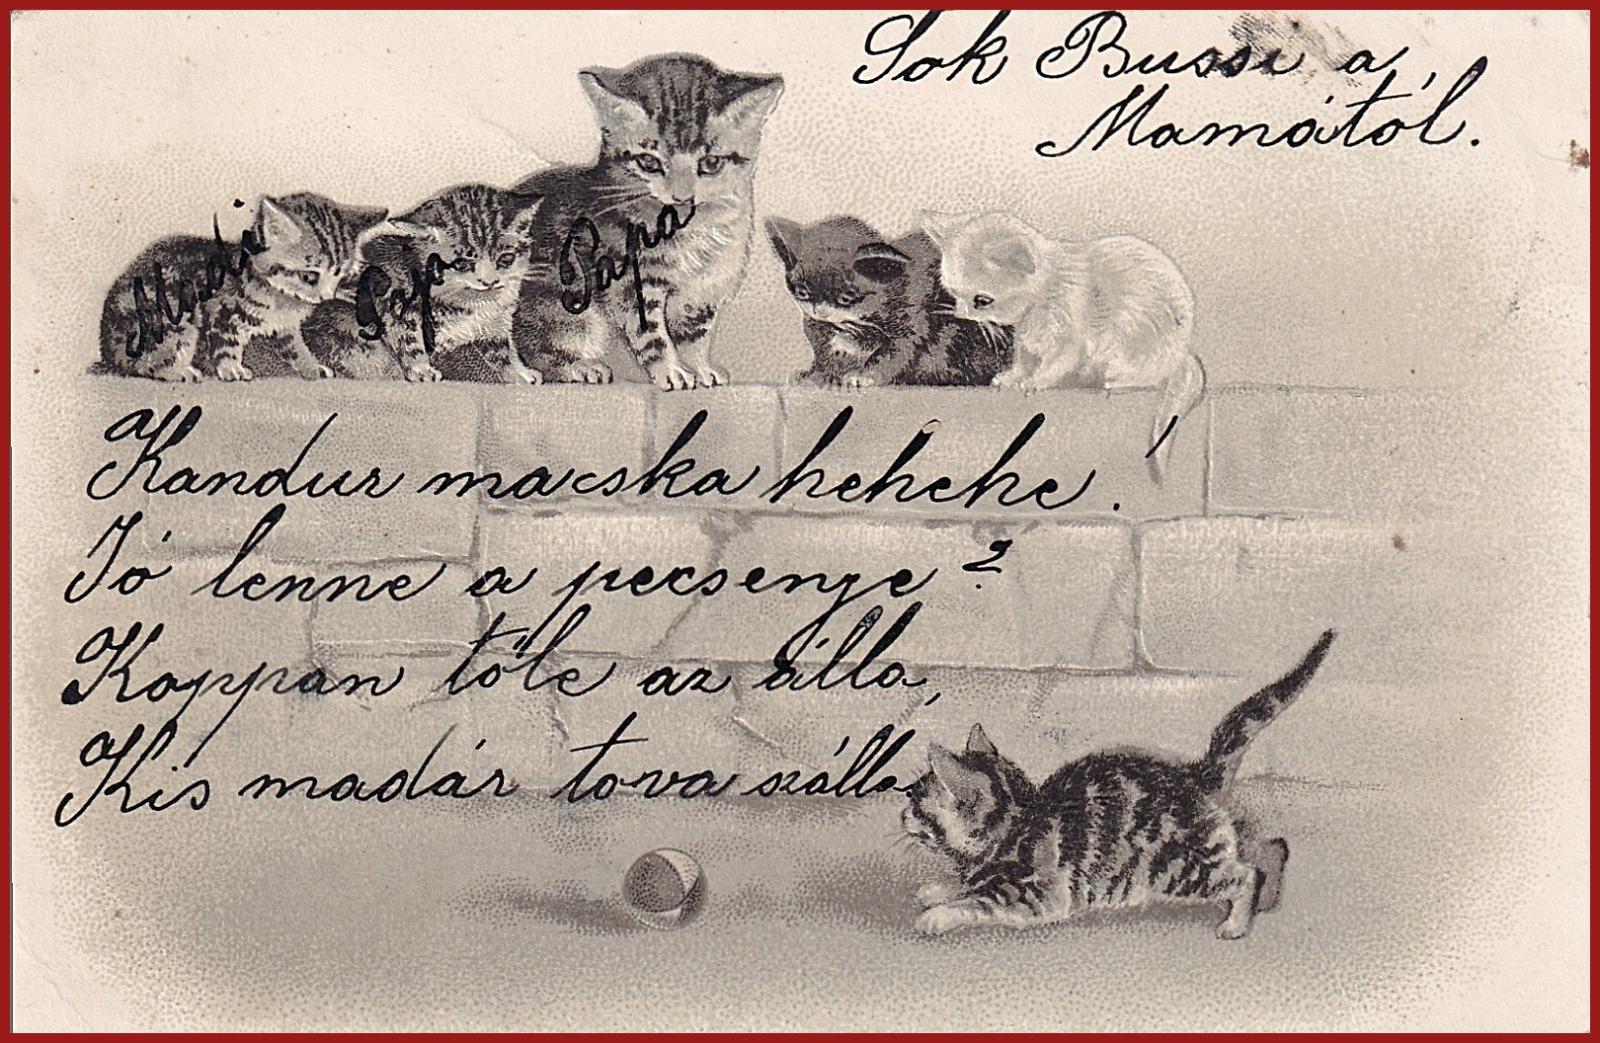 Sok Bussi a
Mamától.
Mudi
Pepa
Papa
Kandur macska hehehe!
Jó lenne a pecsenye?
Koppan tőle az álla,
Kis madár tova szálla